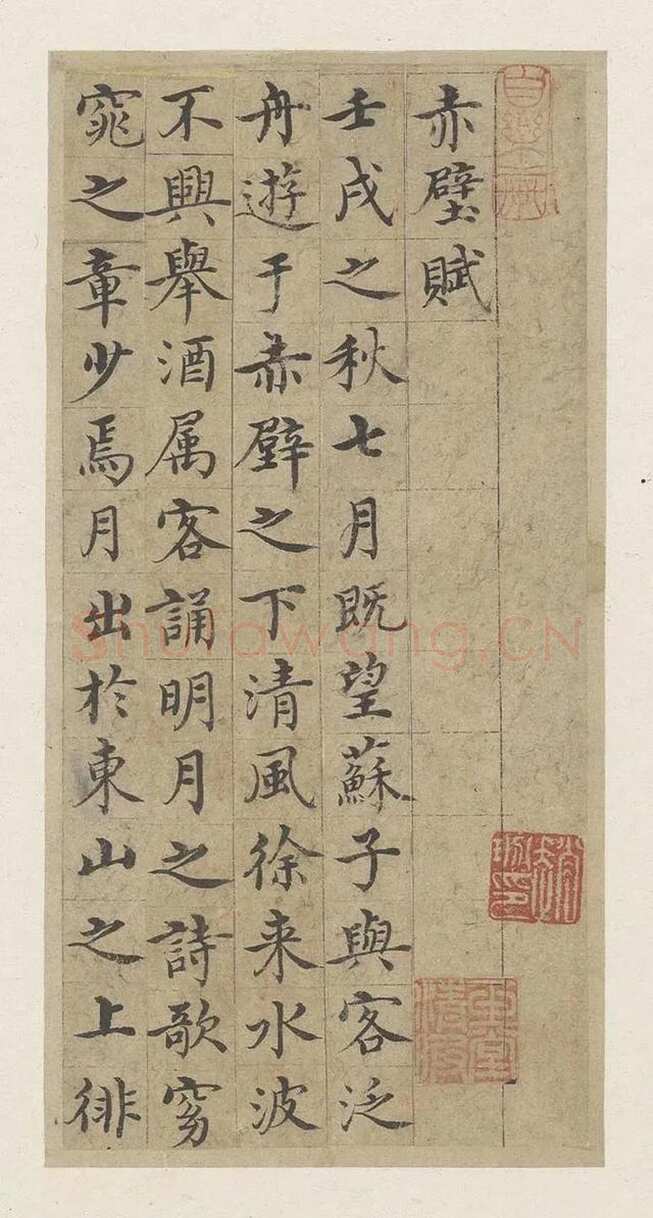 赤壁賦
壬戌之秋七月既望蘇子與客泛
舟遊于赤壁之下清風徐来水波
不興舉酒属客誦明月之詩歌窈
窕之章少焉月出於東山之上徘
Shufawang.CN